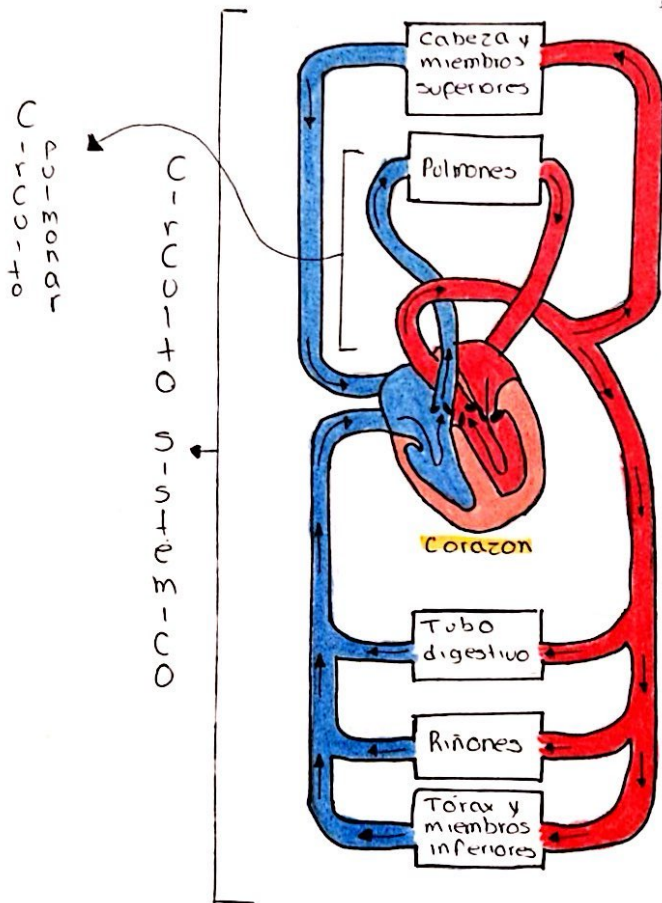 Circuito
pulmonar
Circuito sistemico
Cabeza y
miembros
superiores
Pulmones
Corazon
Tubo
digestivo
Riñones
Tórax y
miembros
inferiores